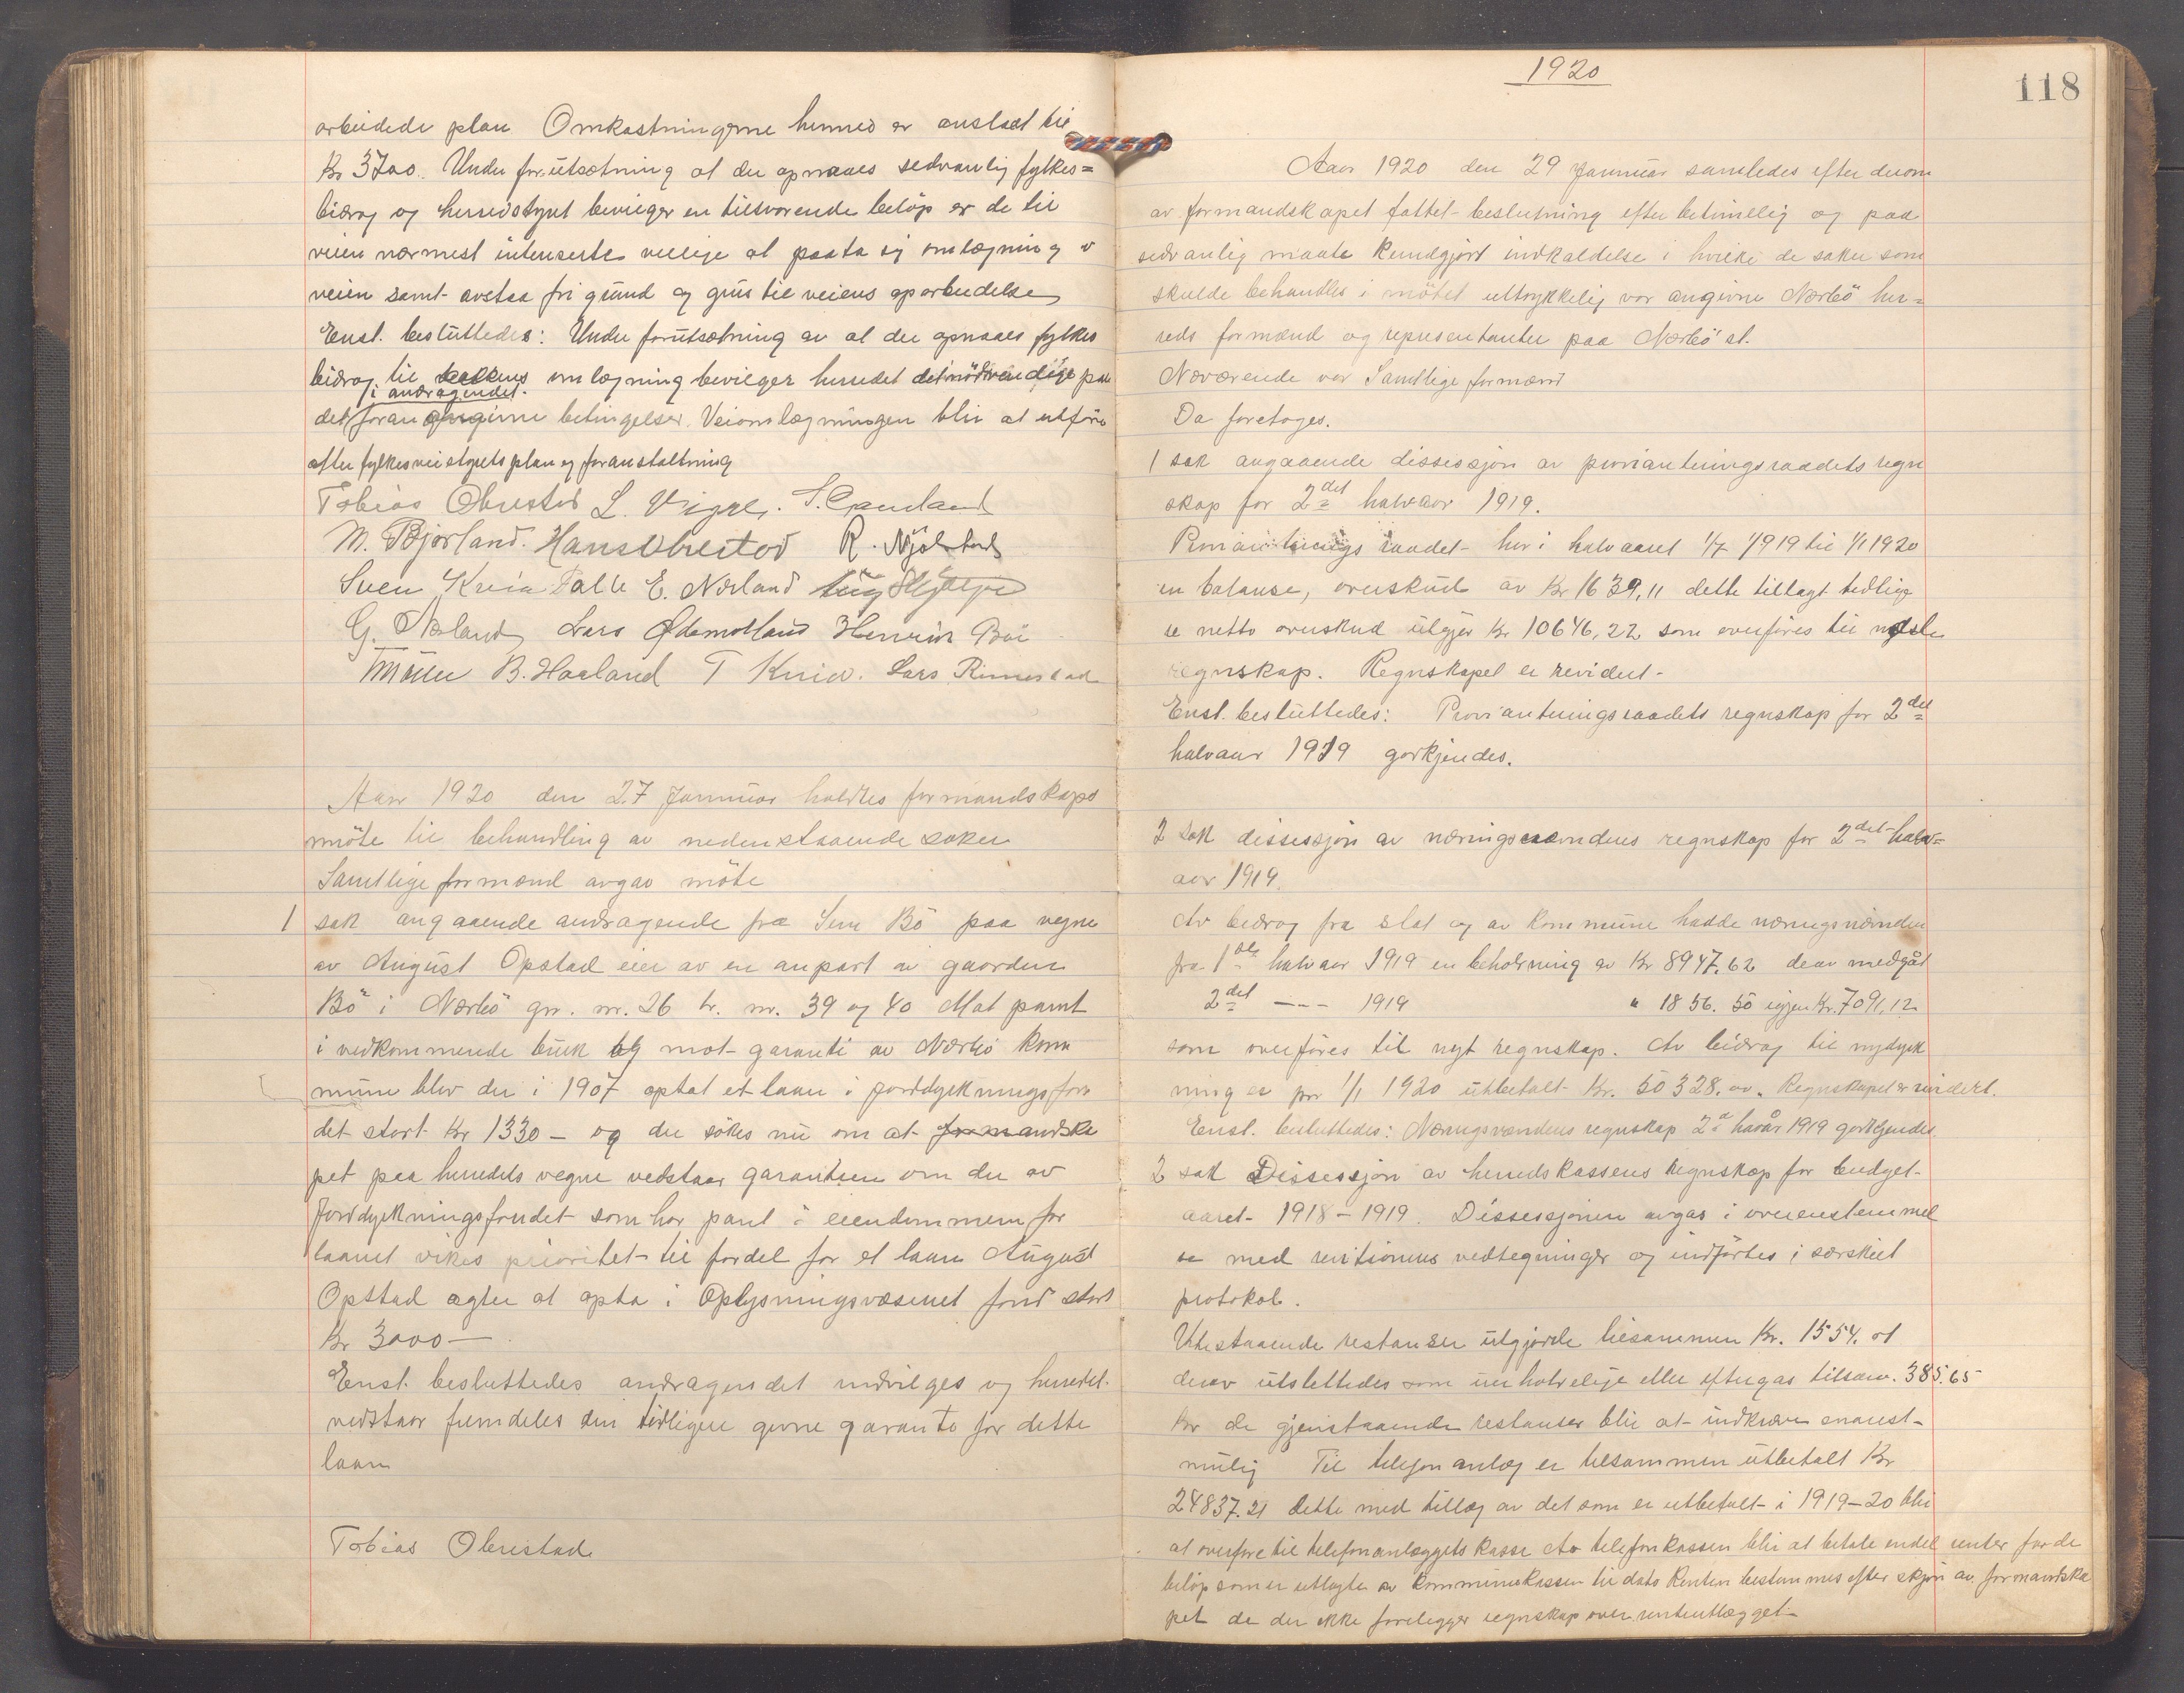 arbeidede plan Omkostningerne hermed er anslaat til
Kr 3700. Under forutsætning at der opnaaes sedvanlig fylkes=
bidrag og herredstyret bevilger en tilsvarende beløp er de til
veien nærmest interserte villige at paata sig omlægning av
veien samt avstaa fri grund og grus til veiens oparbeidelse
Enst. besluttedes: Under forutsætning av at der opnaaes fylkes
bidrag til bakkens omlægning bevilger herredet det nødvendige paa
i andragendet.
det foran angivne betingelser. Veiomlægningen blir at utføre
efter fylkesveistyrets plan og foranstaltning
Tobias Obrestad L. Vigre. S. Garland
M. Bjorland. Hans Obrestad R. Njølstad
Sven Kvia Talle E. Nærland
G. Næland Lars Ødemotland Henrik Bø
B. Haaland T Kvia. Lars Rimestad
Aar 1920 den 27 Januar holdtes formandskaps
möte til behandling av nedenstaaende saker
Samtlige formænd avgav möte
1 sak angaaende andragende fra Sven Bö paa vegne
av August Opstad eier av en anpart av gaarden
Bö i Nærbö gr. nr. 26 br. nr. 39 og 40 Mot pant
i vedkommende bruk og mot garanti av Nærbö kom
mune blev der i 1907 optat et laan i jorddyrkningsfon
det stort Kr 1330 – og der søkes nu om at formandska
pet paa herredets vegne vedstaar garantien om der av
Jorddyrkningsfondet som har pant i eiendommen for
laanet vikes prioritet til fordel for et laan August
Opstad agter at opta i Oplysningsvæsenet fond stort
Kr 3000 –
Enst. besluttedes andragendet indvilges og herredet
vedstaar fremdeles den tidligere givne garanti for dette
laan
Tobias Obrestad
1920
118
Aar 1920 den 29 Januar samledes efter derom
av formandskapet fattet beslutning efter betimelig og paa
sedvanlig maate kundgjort indkaldelse i hvilke de saker som
skulde behandles i mötet uttrykkelig var angivne Nærbö her=
reds formænd og representanter paa Nærbö st.
Nærværende var Samtlige formænd
Da foretoges.
1 sak angaaende dissessjon av provianteringsraadets regn
skap for 2det halvaar 1919.
Provianteringsraadet har i halvaaret 1/7 1919 til 1/1 1920
en balanse, overskud av Kr 1639,11 dette tillagt tidlige
re netto overskud utgjør Kr 10646,22 som overføres til næste
regnskap. Regnskapet er revidert.
Enst. besluttedes: Provianteringsraadets regnskap for 2det
halvaar 1919 godkjendes.
2 sak dissessjon av næringsnævndens regnskap for 2det halv=
aar 1919.
Av bidrag fra stat og av kommune hadde næringsnævnden
fra 1ste halvaar 1919 en beholdning av Kr 8947.62 derav medgåt
2det – – – 1919 " 1856.50 igjen Kr. 7091,12
som overføres til nyt regnskap. Av bidrag til nydyrk
ning er pr 1/1 1920 utbetalt Kr. 50328.00. Regnskapet er revidert.
Enst. besluttedes: Næringsnævndens regnskap 2d havår 1919 godkjendes.
3 sak Dissessjon av herredskassens regnskap for budget-
aaret 1918–1919. Dissessjonen avgas i overenstemmel
se med revitionens vedtegninger og indførtes i særskilt
protokol.
Utestaaende restanser utgjorde tilsammen Kr. 1554.01
derav utslettedes som uerholdelige eller eftergas tilsam. 385.65
Kr de gjenstaaende restanser blir at indkræve snarest
mulig Til telefonanlæg er tilsammen utbetalt Kr
24837.21 Dette med tillæg av det som er utbetalt i 1919–20 blir
at overføre til telefonanlæggets kasse Av telefonkassen blir at betale endel renter for de
beløp som er utlagte av kommunekassen til dato Renten bestemmes efter skjøn av formandska
pet da der ikke forelegger regnskap over renteutlægget